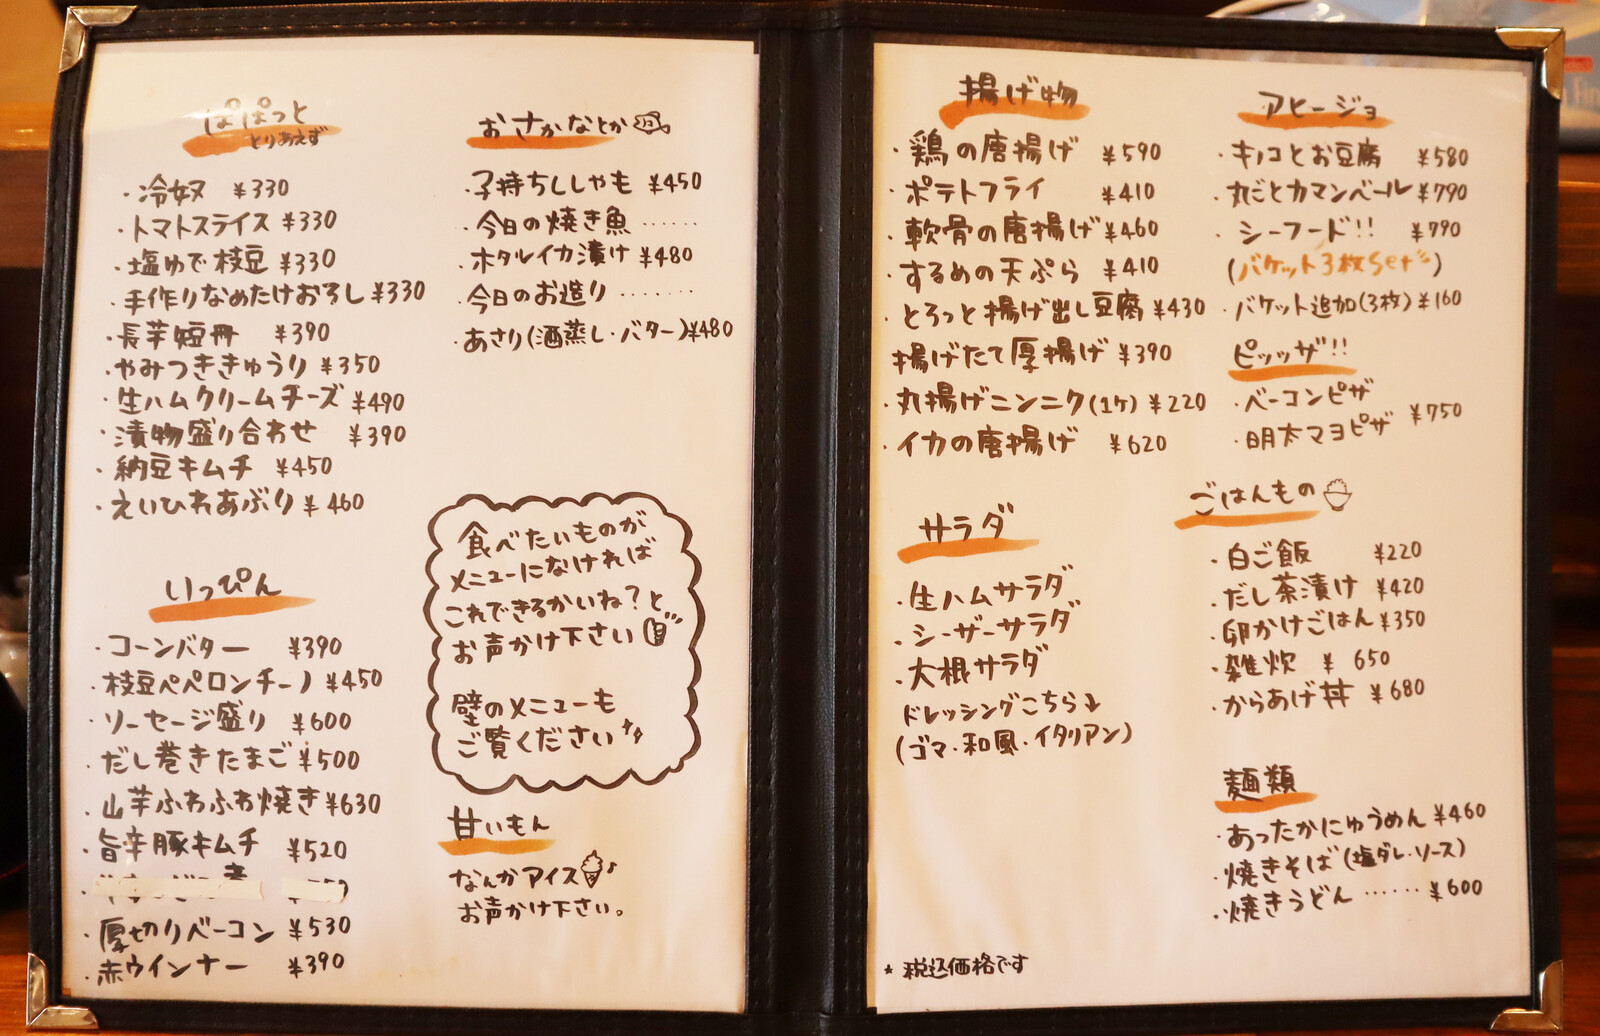 ぱぱっと
とりあえず
・冷奴 ¥330
・トマトスライス ¥330
・塩ゆで枝豆 ¥330
・手作りなめたけおろし ¥330
・長芋短冊 ¥390
・やみつききゅうり ¥350
・生ハムクリームチーズ ¥490
・漬物盛り合わせ ¥390
・納豆キムチ ¥450
・えいひれあぶり ¥460
いっぴん
・コーンバター ¥390
・枝豆ペペロンチーノ ¥450
・ソーセージ盛り ¥600
・だし巻きたまご ¥500
・山芋ふわふわ焼き ¥630
・旨辛豚キムチ ¥520
・厚切りベーコン ¥530
・赤ウインナー ¥390
おさかなとか
・子持ちししゃも ¥450
・今日の焼き魚 ……
・ホタルイカ漬け ¥480
・今日のお造り ……
・あさり(酒蒸し・バター) ¥480
食べたいものが
メニューになければ
これできるかいね?と
お声かけ下さい
壁のメニューも
ご覧ください
甘いもん
なんかアイス
お声かけ下さい。
揚げ物
・鶏の唐揚げ ¥590
・ポテトフライ ¥410
・軟骨の唐揚げ ¥460
・するめの天ぷら ¥410
・とろっと揚げ出し豆腐 ¥430
揚げたて厚揚げ ¥390
・丸揚げニンニク(1ケ) ¥220
・イカの唐揚げ ¥620
サラダ
・生ハムサラダ
・シーザーサラダ
・大根サラダ
ドレッシングこちら↓
(ゴマ・和風・イタリアン)
＊税込価格です
アヒージョ
・キノコとお豆腐 ¥580
・丸ごとカマンベール ¥790
・シーフード!! ¥790
(バケット3枚set)
・バケット追加(3枚) ¥160
ピッツァ!!
・ベーコンピザ
・明太マヨピザ ¥750
ごはんもの
・白ご飯 ¥220
・だし茶漬け ¥420
・卵かけごはん ¥350
・雑炊 ¥650
・からあげ丼 ¥680
麺類
・あったかにゅうめん ¥460
・焼きそば(塩ダレ・ソース)
・焼きうどん …… ¥600